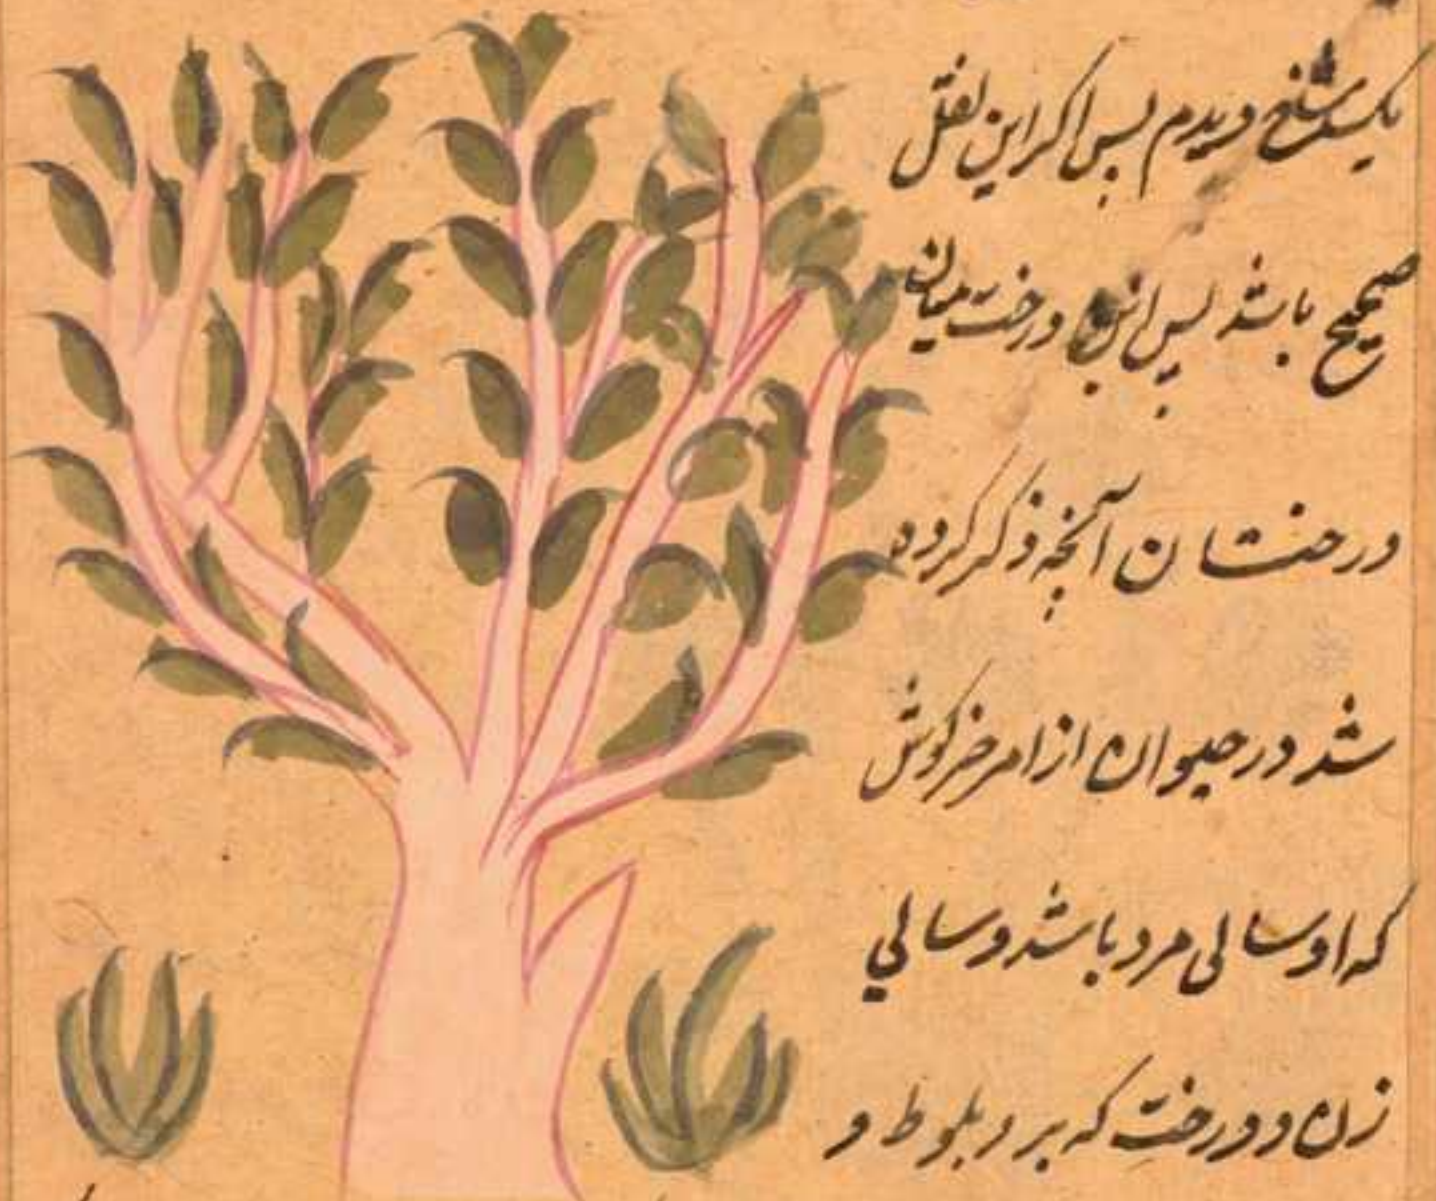 یکشاخ دیدم پس اکر این نقل
صحیح باشد پس این درخت میان
درختان آنچه ذکر کرده
شد در حیوان از امر خرکوش
که او سالی مرد باشد و سالی
زن و درخت که بر دبلوط و